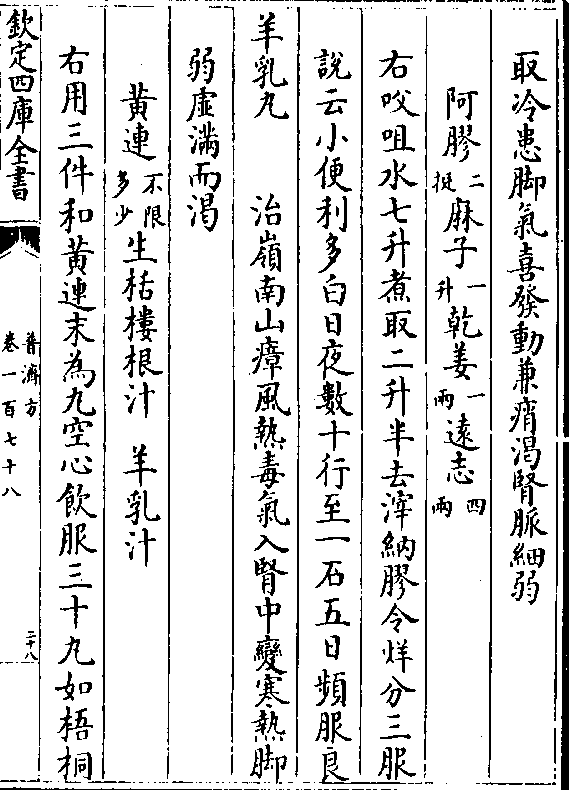 取冷患脚氣喜發動兼痟渴腎脈細弱
阿膠二挺麻子一升乾姜一兩遠志四兩
右㕮咀水七升煮取二升半去滓納膠令烊分三服
說云小便利多白日夜數十行至一石五日頻服良
羊乳丸　治嶺南山瘴風熱毒氣入腎中變寒熱脚
弱虛滿而渴
黃連不限多少生栝樓根汁　羊乳汁
右用三件和黃連末為丸空心飲服三十丸如梧桐
欽定四庫全書
普濟方
卷一百七十八
二十八